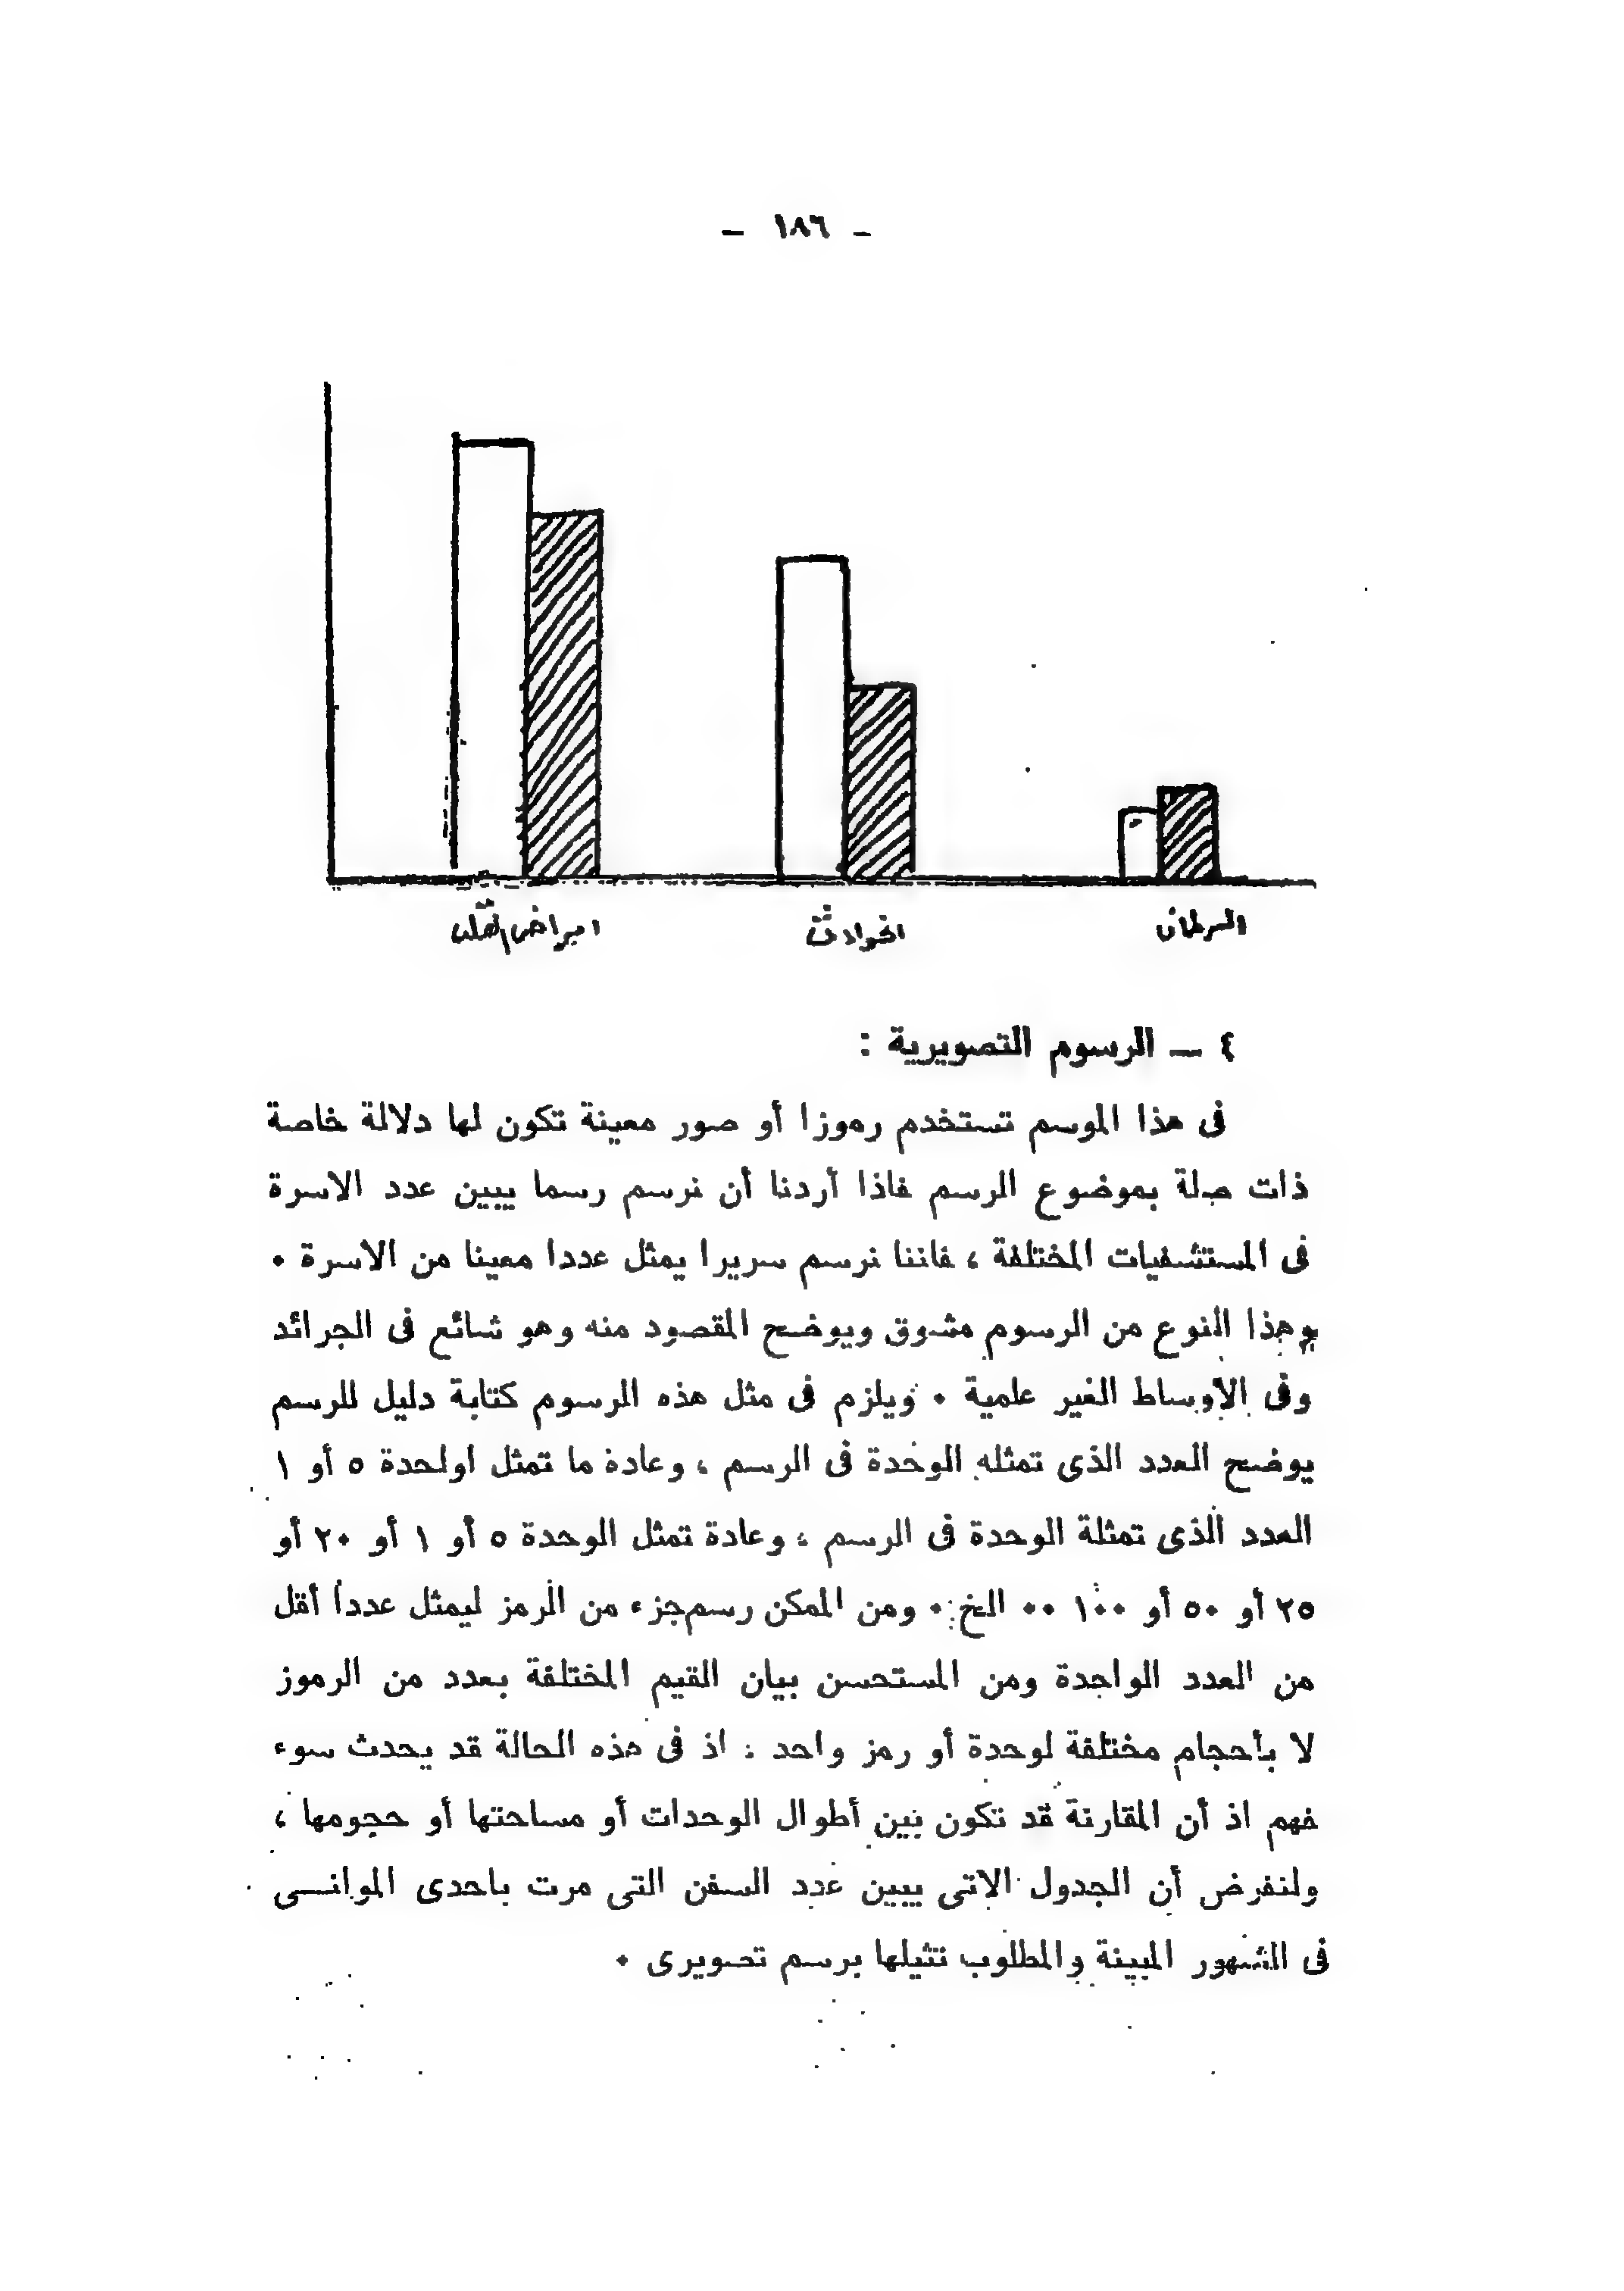 — ١٨٦ —
امراض القلب
الحوادث
السرطان
٤ — الرسوم التصويرية :
فى هذا الموسم تستخدم رموزا أو صور معينة تكون لها دلالة خاصة
ذات صلة بموضوع الرسم فاذا أردنا أن نرسم رسما يبين عدد الاسرة
فى المستشفيات المختلفة ، فاننا نرسم سريرا يمثل عددا معينا من الاسرة ٠
وهذا النوع من الرسوم مشوق ويوضح المقصود منه وهو شائع فى الجرائد
وفى الأوساط الغير علمية ٠ ويلزم فى مثل هذه الرسوم كتابة دليل للرسم
يوضح العدد الذى تمثله الوحدة فى الرسم ، وعادة ما تمثل اولحدة ٥ أو ١
العدد الذى تمثلة الوحدة فى الرسم ، وعادة تمثل الوحدة ٥ أو ١ أو ٢٠ أو
٢٥ أو ٥٠ أو ١٠٠ ٠٠ الخ ٠ ومن الممكن رسم جزء من الرمز ليمثل عددا أقل
من العدد الواحدة ومن المستحسن بيان القيم المختلفة بعدد من الرموز
لا بأحجام مختلفة لوحدة أو رمز واحد : اذ فى هذه الحالة قد يحدث سوء
فهم اذ أن المقارنة قد تكون بين أطوال الوحدات أو مساحتها أو حجومها ،
ولنفرض أن الجدول الاتى يبين عدد السفن التى مرت باحدى الموانــى
فى الشهور المبينة والمطلوب تثيلها برسم تصويرى ٠